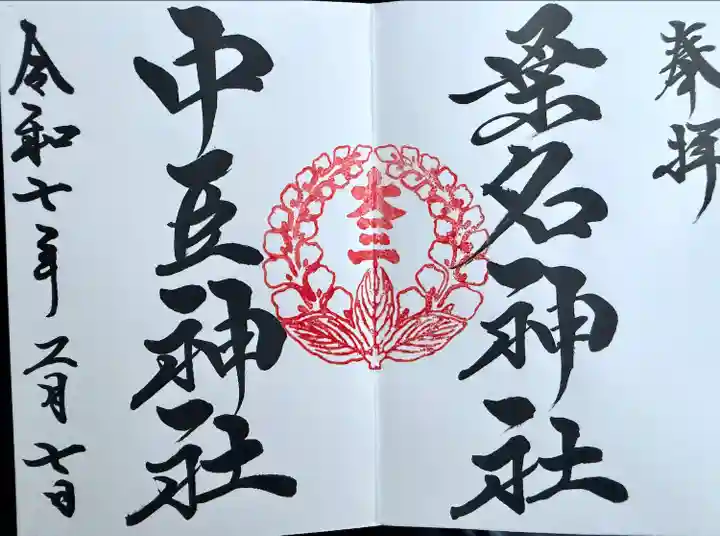 奉拝
桑名神社
大三
中臣神社
令和七年二月七日